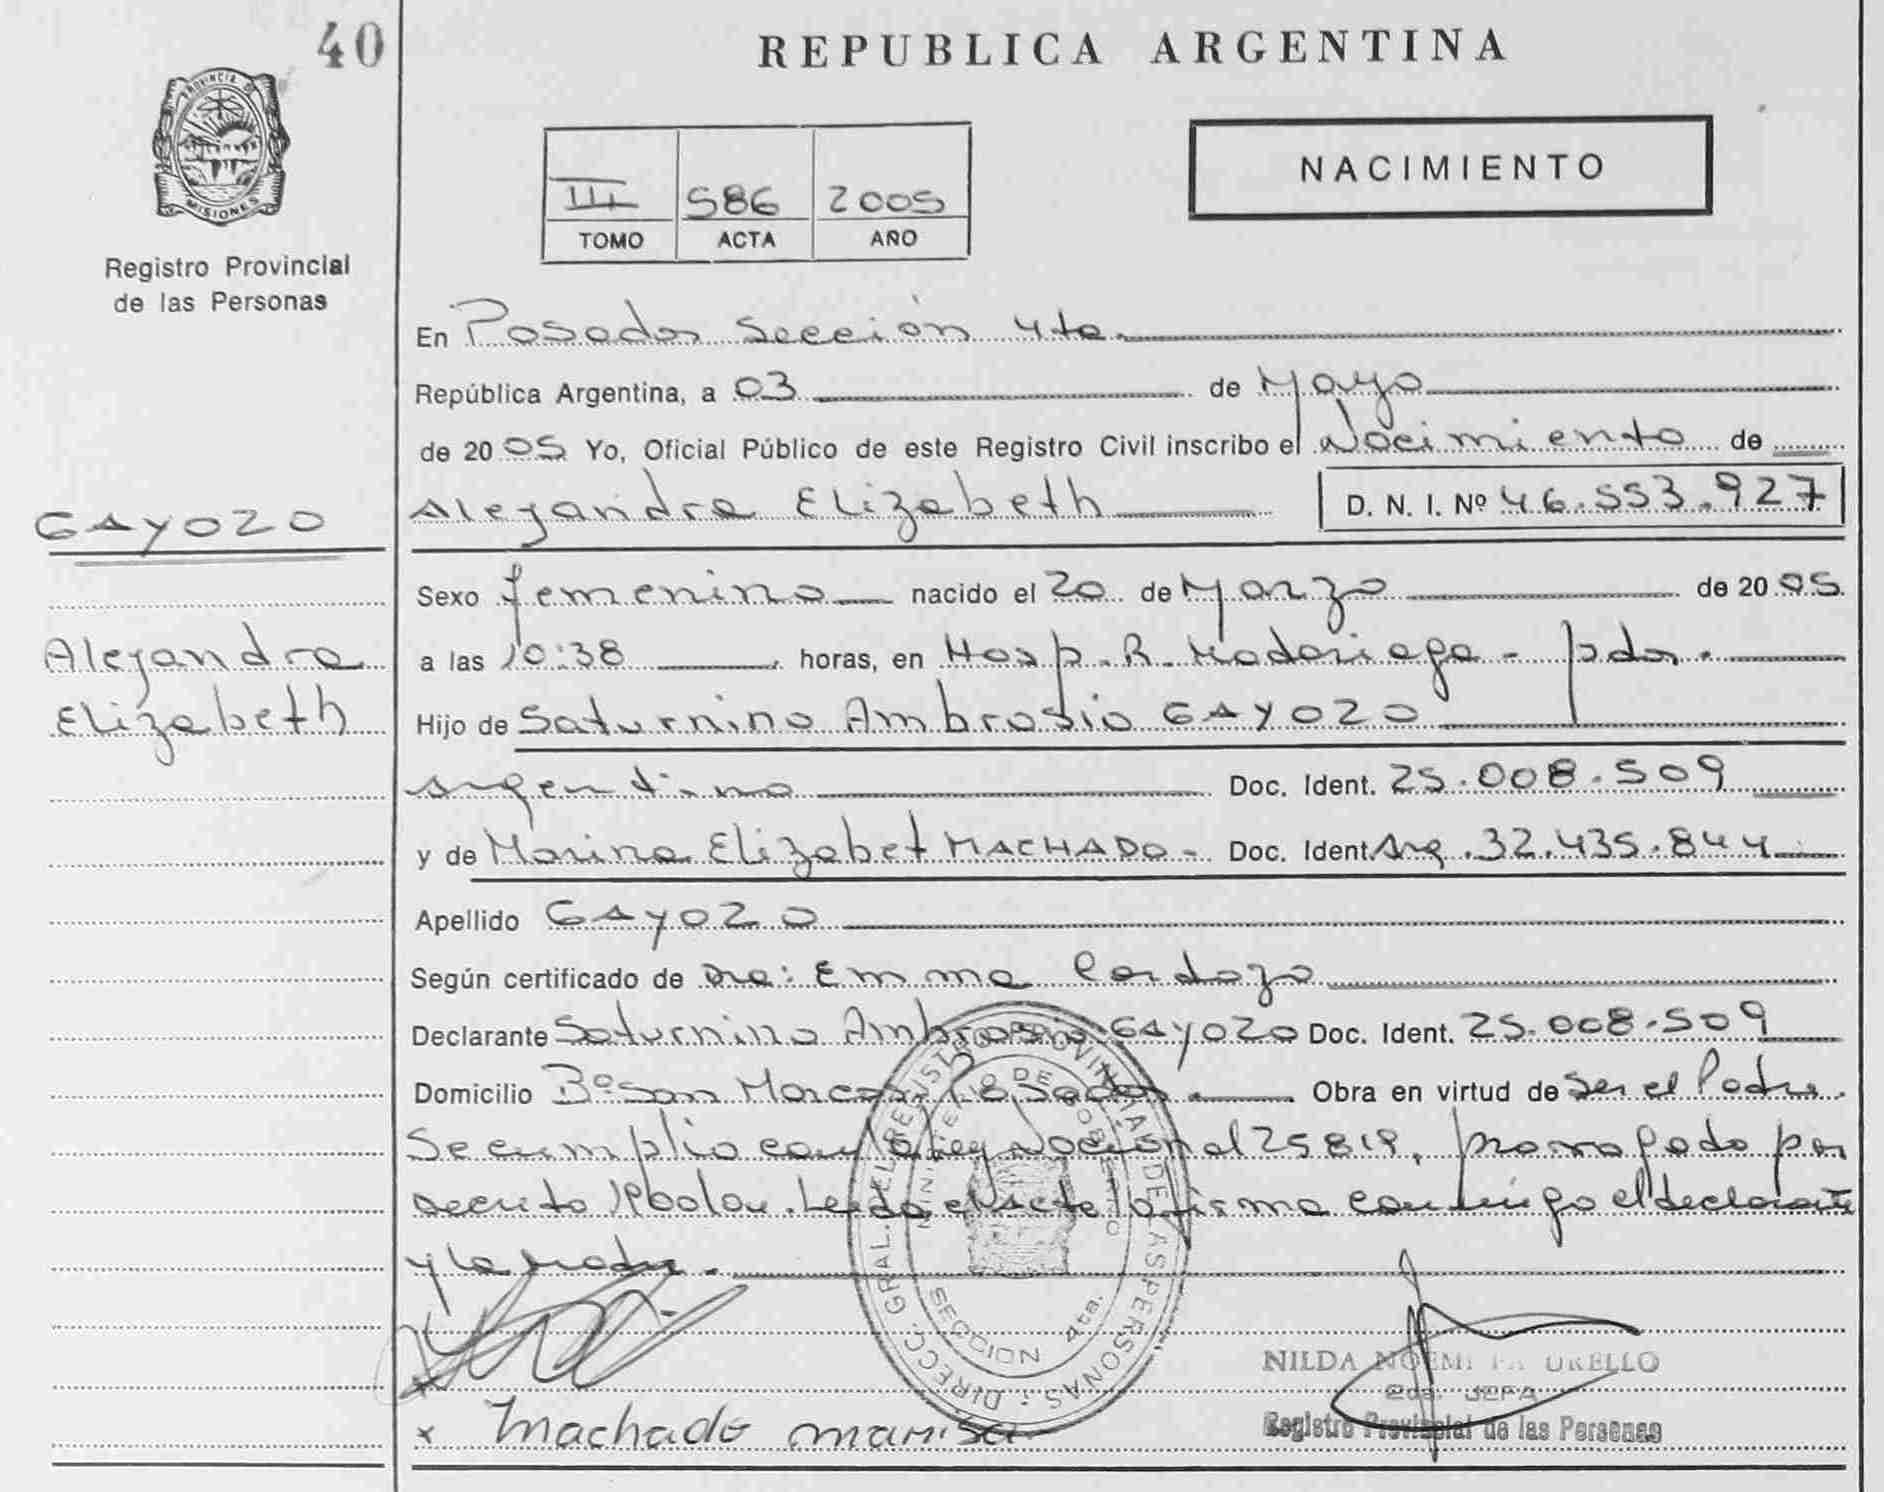 40
REPUBLICA ARGENTINA
PROVINCIA DE
MISIONES
Registro Provincial
de las Personas
NACIMIENTO
III 586 2005
TOMO ACTA AÑO
En Posadas Sección 4ta.
República Argentina, a 03 de Mayo
de 2005 Yo, Oficial Público de este Registro Civil inscribo el Nacimiento de
GAYOZO
Alejandra Elizabeth D. N. I. Nº 46.553.927
Sexo femenino nacido el 20 de Marzo de 2005
Alejandra
a las 10:38 horas, en Hosp. R. Madariaga - pdas.
Elizabeth
Hijo de Saturnino Ambrosio GAYOZO
argentino Doc. Ident. 25.008.509
y de Marina Elizabet MACHADO - Doc. Ident Arg. 32.435.844
Apellido GAYOZO
Según certificado de Dra: Emma Cardozo
Declarante Saturnino Ambrosio GAYOZO Doc. Ident. 25.008.509
Domicilio Bº San Marcos Posadas. Obra en virtud de ser el Padre.
Se cumplio con la Ley Nacional 25819, prorrogado por
decreto Leida el acta la firma conmigo el declarante
y la madre.
DIRECC. GRAL. DEL REGISTRO PROVINCIAL DE LAS PERSONAS
MINISTERIO DE GOBIERNO
SECCION 4ta.
NILDA NOEMI
2da. JEFA
Registro Provincial de las Personas
x Machado marisa